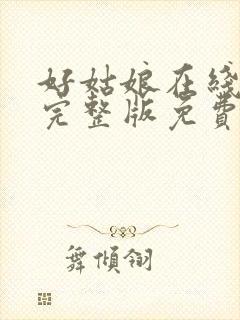 好姑娘在线
完整版免費
舞傾翎